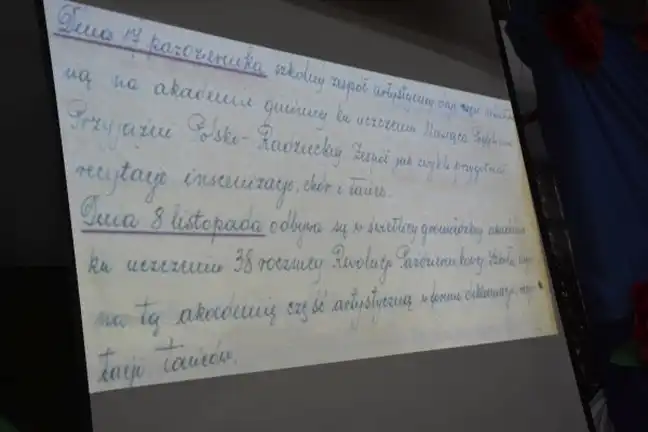 Dnia 17 października szkolny zespół artystyczny dał
ną na akademii gminnej ku uczczeniu Miesiąca
Przyjaźni Polsko-Radzieckiej Zespół jak zwykle przygotował
recytacje inscenizacje, chór i tańce.
Dnia 8 listopada odbyła się w świetlicy gromadzkiej akademia
ku uczczeniu 38 rocznicy Rewolucji Październikowej Szkoła
na tą akademię część artystyczną w formie deklamacji,
tacji tańców.